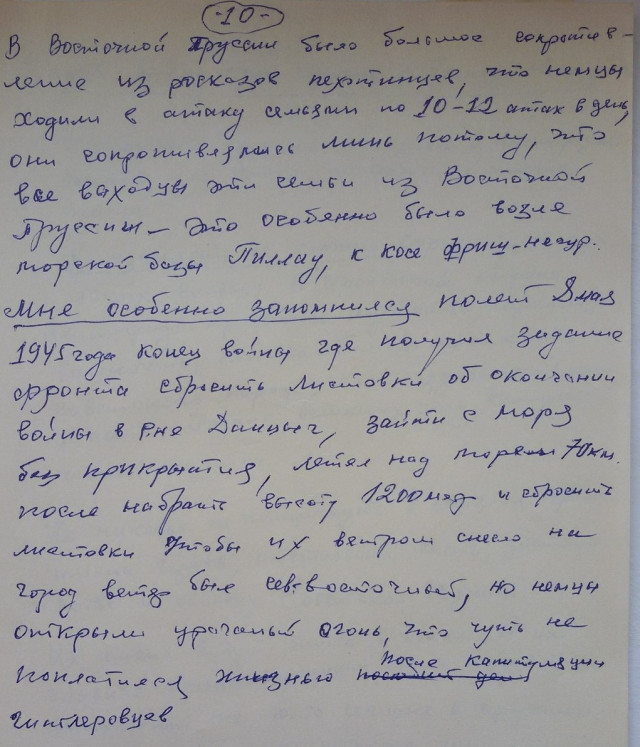 -10-
В Восточной Пруссии было большое сопротив-
ление из росказов пехотинцев, что немцы
ходили в атаку семьями по 10-12 атак в день,
они сопротивлялись лишь потому, что
все выходцы эти семьи из Восточной
Пруссии - это особенно было возле
морской базы Пиллау, к косе Фриш-
Мне особенно запомнился полет 8 мая
1945 года конец войны где получил задание
фронта сбросить листовки об окончании
войны в р-не Данцыг, зайти с моря
без прикрытия, летел над морем 70 км.
после набрать высоту 1200 м и сбросить
листовки чтобы их ветром снесло на
город ветер был сев-восточный, но немцы
открыли ураганый огонь, что чуть не
поплатился жизнью после капитуляции
гитлеровцев